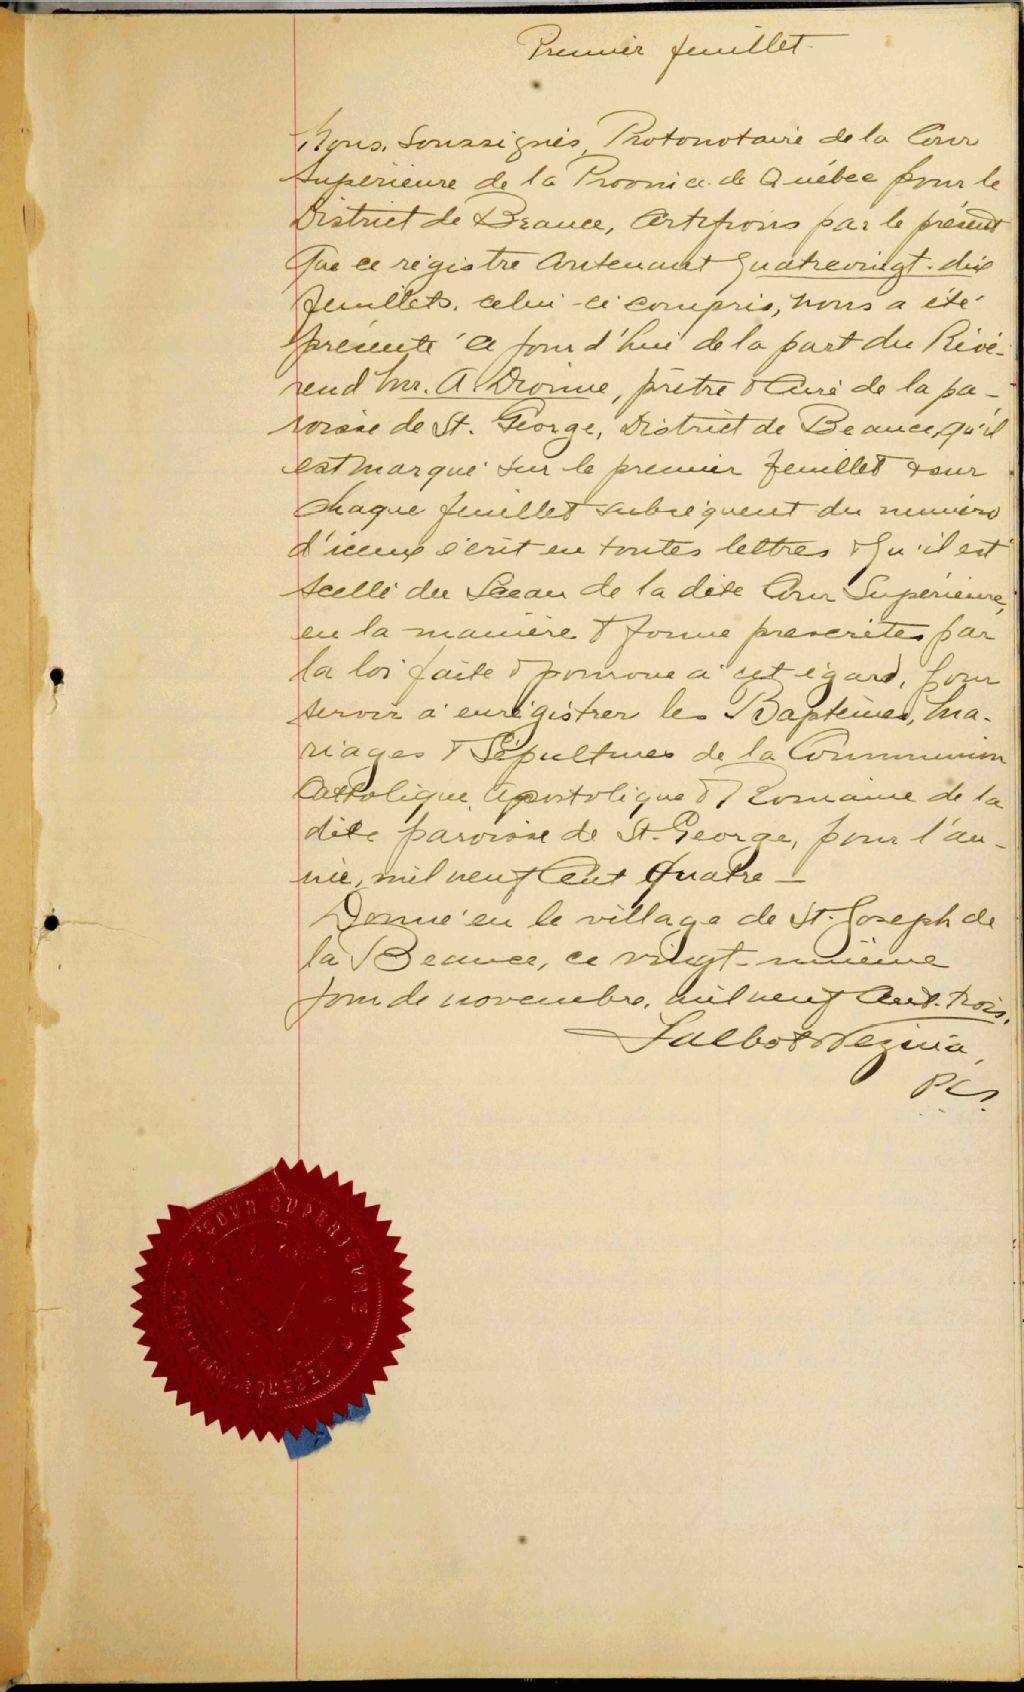 Premier feuillet.
Nous, Soussignés, Protonotaire de la Cour
Supérieure de la Province de Québec pour le
District de Beauce, Certifions par le présent
Que ce régistre Contenant Quatrevingt-dix
feuillets, celui-ci compris, nous a été
présenté ce jour d'hui de la part du Révé-
rend Mr. A. Dionne, prêtre & Curé de la pa-
roisse de St. George, District de Beauce, qu'il
est marqué sur le premier feuillet & sur
chaque feuillet subséquent du numéro
d'iceux écrit en toutes lettres & qu'il est
scellé du Sceau de la dite Cour Supérieure,
en la manière & forme prescrites par
la loi faite & pourvue à cet égard, pour
servir à enrégistrer les Baptêmes, Ma-
riages & Sépultures de la Communion
Catholique, Apostolique & Romaine de la
dite paroisse de St. George, pour l'an-
née, mil neuf Cent Quatre —
Donné en le village de St. Joseph de
la Beauce, ce vingt-neuvième
jour de novembre, mil neuf Cent-trois.
Talbot & Vézina,
P.C.S.
COUR SUPERIEURE